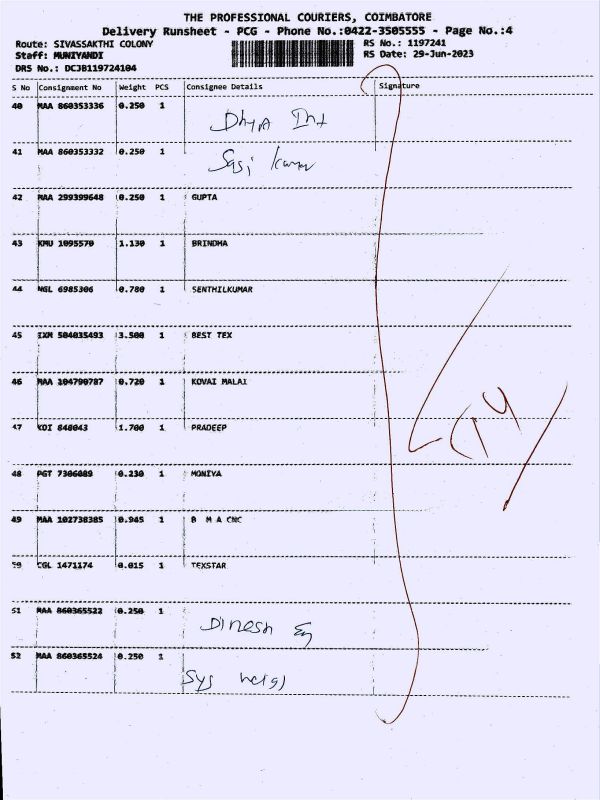 THE PROFESSIONAL COURIERS, COIMBATORE
Delivery Runsheet - PCG - Phone No.:0422-3505555 - Page No.:4
Route: SIVASSAKTHI COLONY RS No.: 1197241
Staff: MUNIYANDI RS Date: 29-Jun-2023
DRS No.: DCJB119724104
S No Consignment No Weight PCS Consignee Details Signature
40 MAA 860353336 0.250 1 Dhya Int
41 MAA 860353332 0.250 1 Sasi kumar
42 MAA 299399648 0.250 1 GUPTA
43 KMU 1095570 1.130 1 BRINDHA
44 NGL 6985306 0.780 1 SENTHILKUMAR
45 IXM 504035493 3.500 1 BEST TEX
46 MAA 104790787 0.720 1 KOVAI MALAI
47 KOI 848043 1.700 1 PRADEEP
48 PGT 7306089 0.230 1 MONIYA
49 MAA 102738385 0.945 1 B M A CNC
50 CGL 1471174 0.015 1 TEXSTAR
51 MAA 860365522 0.250 1 Dinesh
52 MAA 860365524 0.250 1 Sys